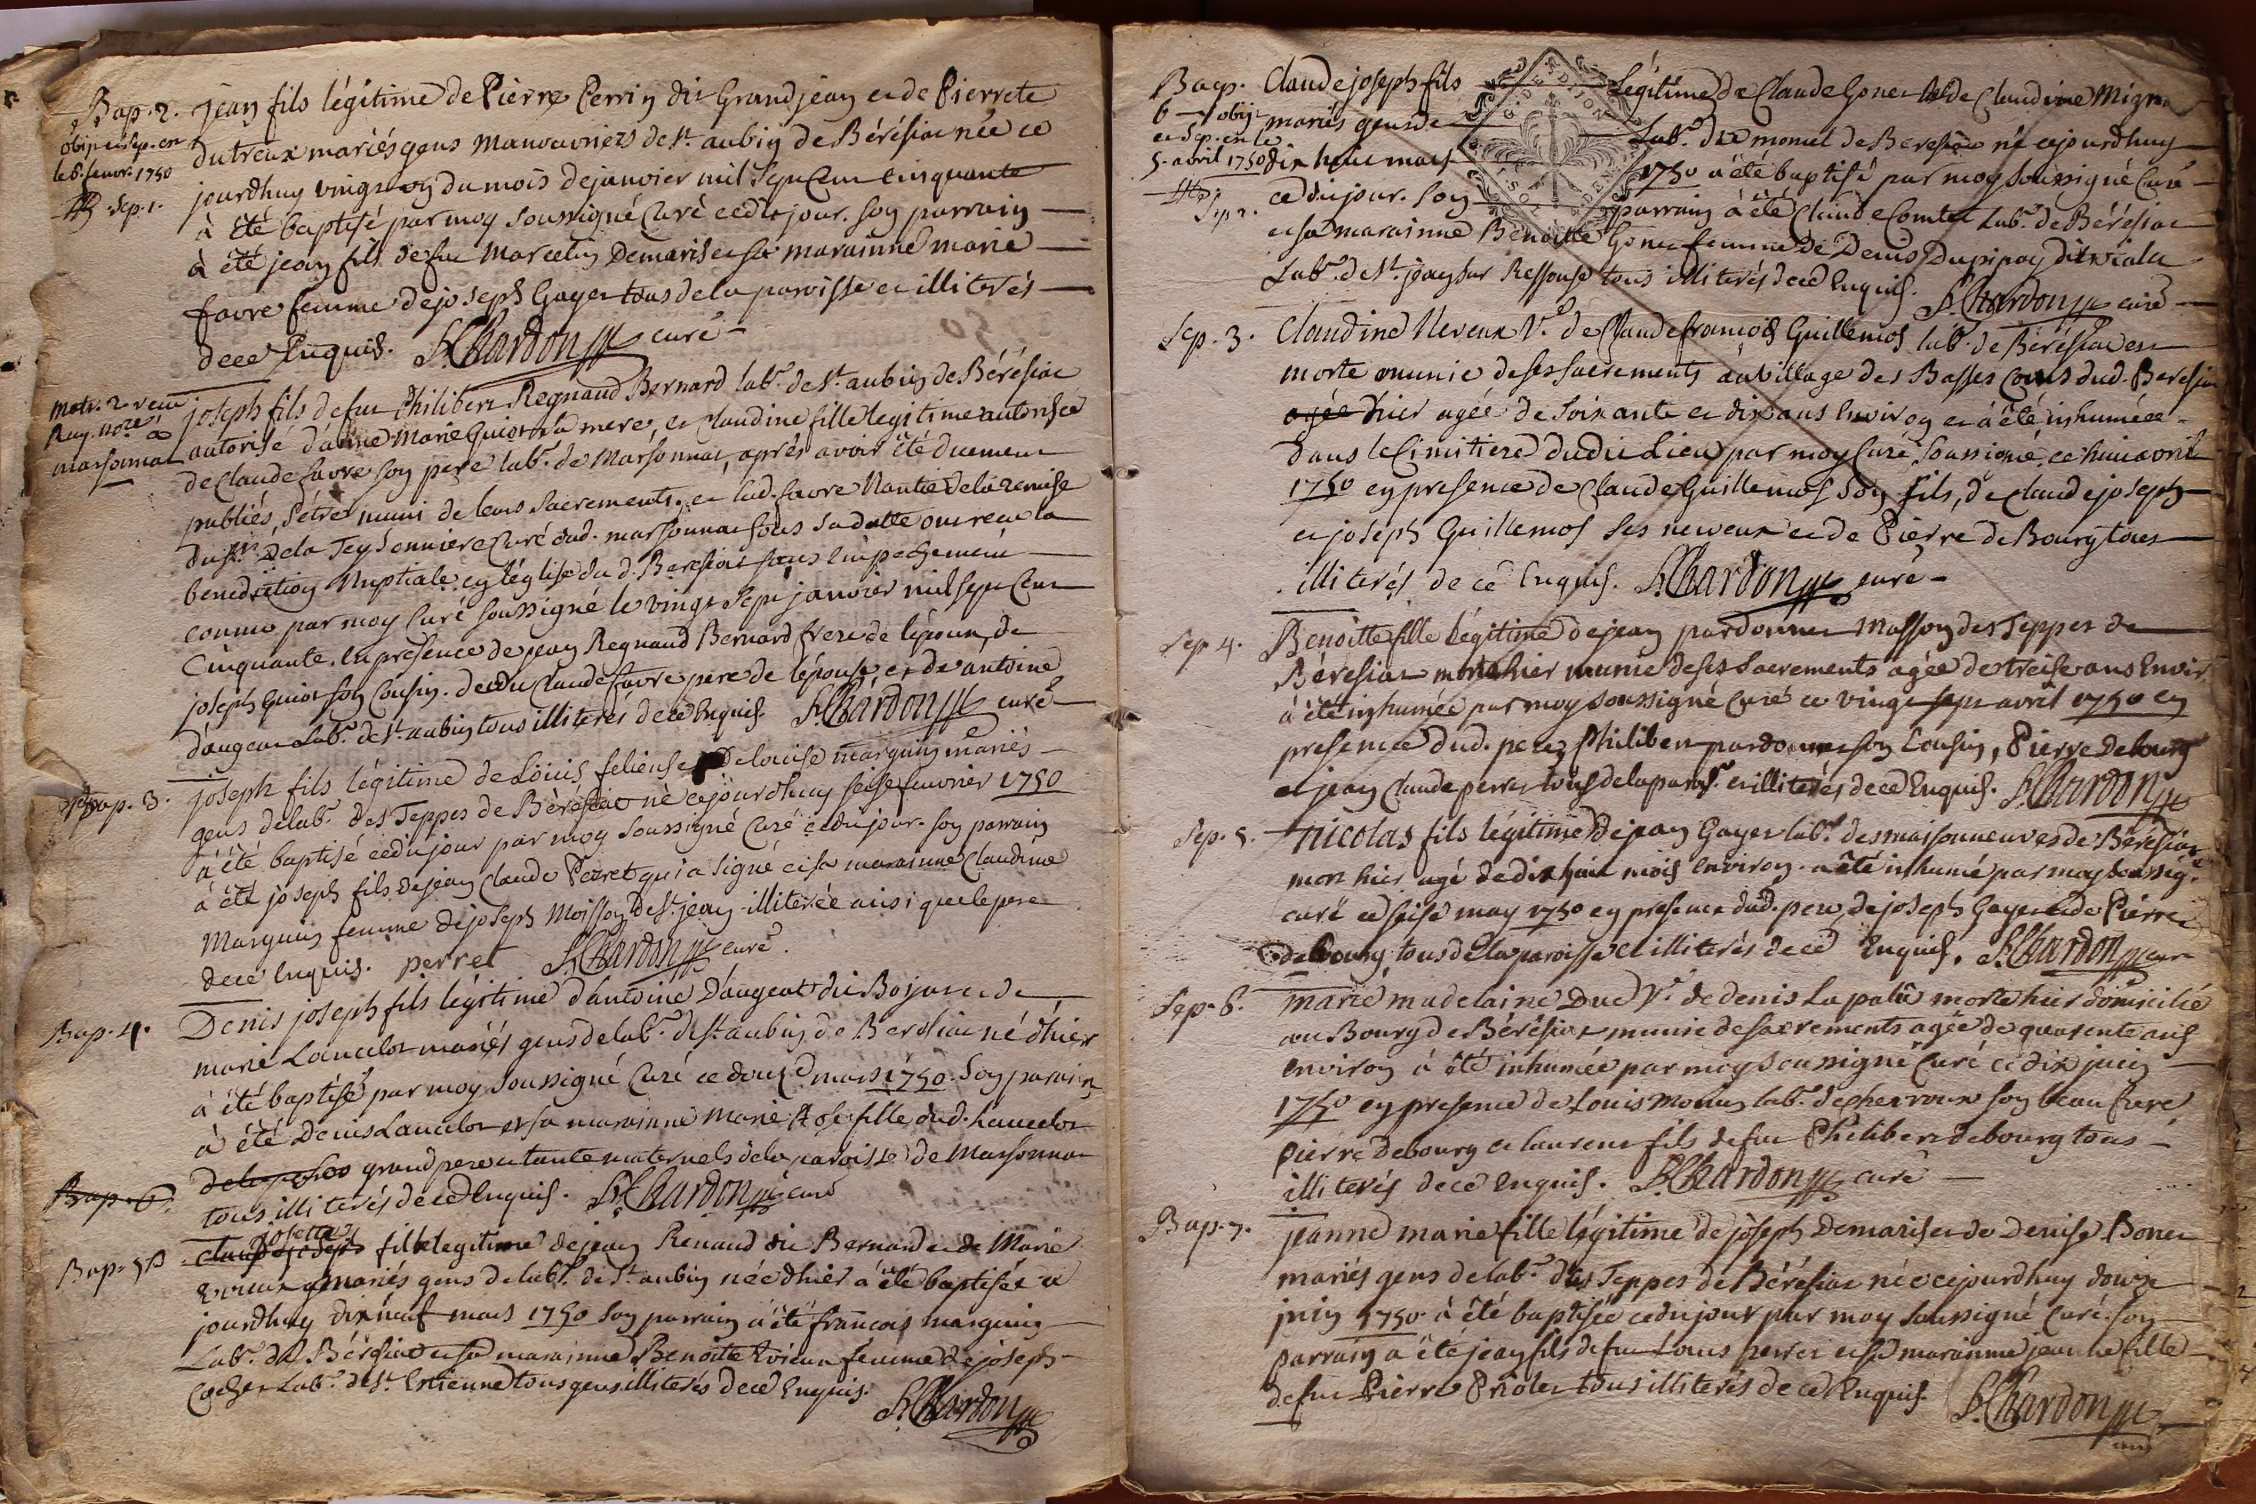 Bap. 2. jean fils légitime de Pierre Perrin dit Grandjean et de Pierrete
obijt et sep. en
le 6. fevr. 1750
Sep. 1.
dutreux mariés gens manouvriers de st. aubin de Bérésiat née ce
jourdhuy vingt un du mois de janvier mil sept cent cinquante
à été baptisé par moy soussigné Curé cedt jour. son parrain
à été jean fils de fut Marcelin Demaris et sa marainne marie
favre femme de joseph Gayet tous de la paroisse et illiterés
dece Enquis. Chardon curé
mari. 2.
Ray. nore à
marsonnat
joseph fils de fut Philibert Regnaud Bernard labr. de St. aubin de Bérésiat
autorisé d'anne Marie Guiot sa mere, et Claudine fille legitime autorisée
de Claude favre son pere labr. de Marsonnat, aprés avoir été duement
publiés, s'étre muni de leurs sacrements, et lad. favre Nantie de la remise
du sr. De la Teysonniere Curé dud. marsonnat sous sa datte ont recu la
benediction Nuptiale en léglise du d. Beresiat sans empechement
connu par moy Curé soussigné le vingt sept janvier mil sept cent
Cinquante. En presence de jean Regnaud Bernard frere de lépoux, de
joseph Guiot son Cousin. dedu Claude favre pere de lépouse, et de antoine
daugeat labr. de St. aubin tous illiterés de ce Enquis. Chardon curé
Bap. 3. joseph fils légitime de Löuis feliense Delouise marguin mariés
gens de labr. des Teppes de Bérésiat né cejourdhuy seise fevrier 1750
à été baptisé cedu jour par moy soussigné Curé cedu jour. son parrain
à été joseph fils de jean Claude Perret qui a signé et sa marainne Claudine
Marguin femme de joseph Moisson de St. jean illiterée ainsi que le pere
dece Enquis. perret Chardon curé.
Bap. 4. Denis joseph fils légitime d'antoine Daugeat dit Bojat et de
marie Lancelot mariés gens de labr. de St. aubin de Beresiat né d'hier
à été baptisé par moy soussigné Curé ce douze mars 1750. Son parain
à été Denis Lancelot et sa marainne Marie fille dud. Lancelot
Bap. 6. grand pere et tante maternels de la paroisse de Marsonnat
tous illiterés de ce Enquis. Chardon curé
josette
Bap. 5 claude joseph fille legitime de jean Renaud dit Bernard et de Marie
Evieux mariés gens de labr. de St. aubin née dhier à été baptisée ce
jourdhuy dix neuf mars 1750 son parrain à été francois marguin
Labr. de Bérésiat et sa marainne Benoite Evieux femme de joseph
Cochet Labr. de St. Estienne tous gens illiterés de ce Enquis.
Chardon
Bap. Claude joseph fils légitime de Claude Gonet et de Claudine Mign
6 obijt
et Sep. en le
5. avril 1750
Sep. 2.
mariés gens de Labr. de monul de Beresiat né cejourdhuy
dix huit mars 1750 à été baptisé par moy soussigné Curé
cedu jour. son parrain à été Claude Comtet Labr. de Bérésiat
et sa marainne Benoitte Gonet femme de Denis Dupipay dit viala
Labr. de St. jean sur Ressouse tous illiterés de ce Enquis. Chardon curé
Sep. 3. Claudine Neveux Ve. de Claude francois Guillemos labr. de Bérésiat est
morte munie deses sacrements au village des Basses Cours dud. Beresiat
agée hier agée de Soixante et dix ans Environ et à été inhumée
dans le Cimitiere dudit Lieu par moy Curé soussigné ce huit avril
1750 en presence de Claude Guillemos son fils, de claude joseph
et joseph Guillemos ses neveux et de Pierre De Bourg tous
illiterés de ce Enquis. Chardon curé
Sep. 4. Benoitte fille légitime de jean pardonnet Masson des Teppes de
Béresiat morte hier munie de ses sacrements agée de treise ans Envir.
à été inhumée par moy soussigné Curé ce vingt sept avril 1750 en
presence dud. pere, Philibert pardonnet son Cousin, Pierre Debourg
et jean Claude perret tous de la paroise. et illiterés de ce Enquis. Chardon
Sep. 5. nicolas fils légitime de jean Gayet labr. des maisonneuves de Bérésiat
mort hier agé de dix huit mois Environ. a été inhumé par moy soussig.
curé ce seise may 1750 en presence dud. pere, de joseph Gayet et de Pierre
debourg tous de la paroisse et illiterés de ce Enquis. Chardon curé
Sep. 6. marie madelaine Duc Ve. de denis Lapalü morte hier domiciliée
au Bourg de Bérésiat munie de sacrements agée de quarente ans
environ à été inhumée par moy soussigné Curé ce dix juin
1750 en presence de Louis Monin labr. de cherroux son beau frere
Pierre Debourg et laurent fils de fut Philibert debourg tous
illiterés de ce Enquis. Chardon curé
Bap. 7. jeanne marie fille légitime de joseph Demaris et de Denise Bonet
mariés gens de labr. des Teppes de Bérésiat née cejourdhuy douze
juin 1750 à été baptisée cedu jour par moy soussigné Curé. son
parrain a été jean fils de fut Louis perret et sa marainne jeanne fille
de fut Pierre Piolet tous illiterés de ce Enquis. Chardon
curé